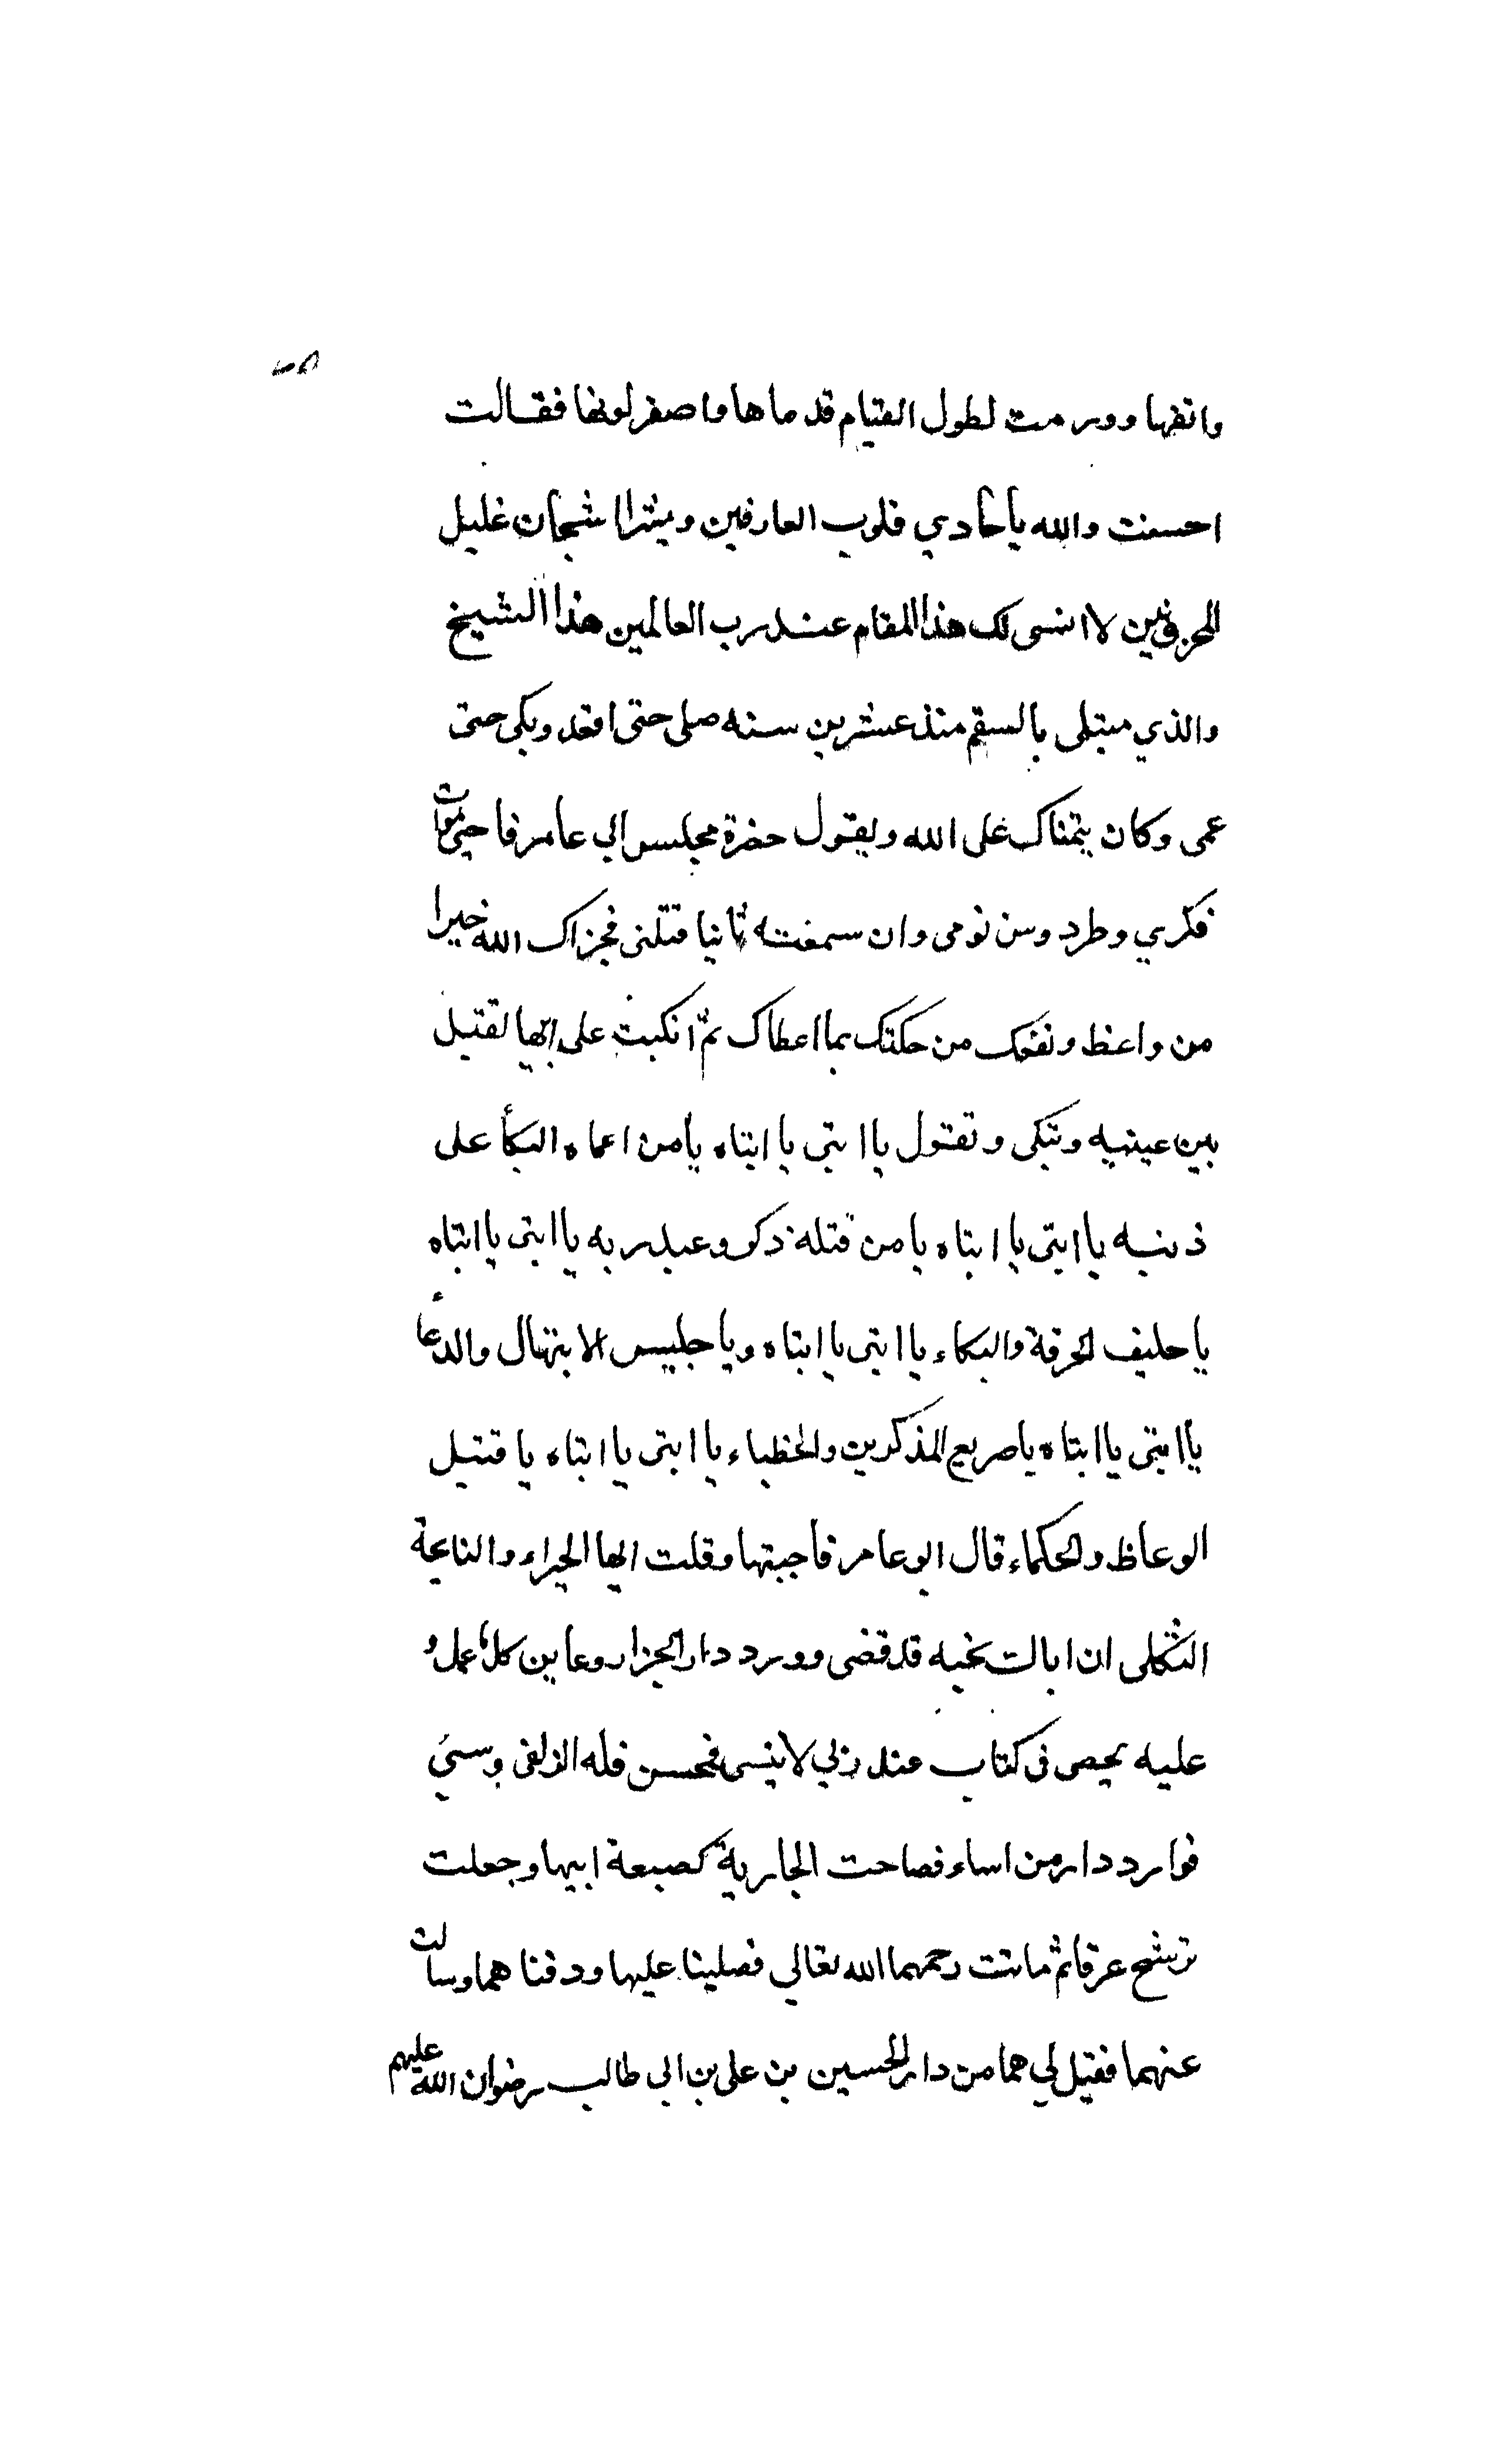 وانفها وورمت لطول القيام قدماها واصفر لونها فقالت
احسنت والله يا حادي قلوب العارفين ومثير اشجان غليل
المحزونين لا انسى لك هذا المقام عند رب العالمين هذا الشيخ
والذي مبتلى بالسقم منذ عشرين سنه صلى حتى اقعد وبكى حتى
عمى وكان يتمناك على الله ويقول حضرة مجلس ابي عامر فاحيى موات
فكري وطرد وسن نومى وان سمعته ثانيا قتلنى فجزاك الله خيرا
من واعظ ونفعك من حكمتك بما اعطاك ثم انكبت على ابيها تقبل
بين عينيه وتبكى وتقول يا ابتى يا ابتاه يا من اعماه البكأ على
ذنبه يا ابتى يا ابتاه يا من قتله ذكر وعيد ربه يا ابتى يا ابتاه
يا حليف الحرقة والبكاء يا ابتى يا ابتاه ويا جليس الابتهال والدعأ
يا ابتى يا ابتاه يا صريع المذكرين والخطباء يا ابتى يا ابتاه يا قتيل
الوعاظ والحكماء قال ابو عامر فاجبتها وقلت ايها الحيراء والنايحة
الثكلى ان اباك نحبه قد قضى وورد دار الجزا وعاين كلما عمل و
عليه يحصى فى كتاب عند ربي لا ينسى فمحسن فله الزلفى ومسيئ
فوارد دار من اساء فصاحت الجارية كصيحة ابيها وجعلت
ترشح عرقا ثم ماتت رحمهما الله تعالي فصلينا عليها ودفناهما وسالت
عنهما فقيل لي هما من دار الحسين بن على بن ابى طالب رضوان الله عليهم